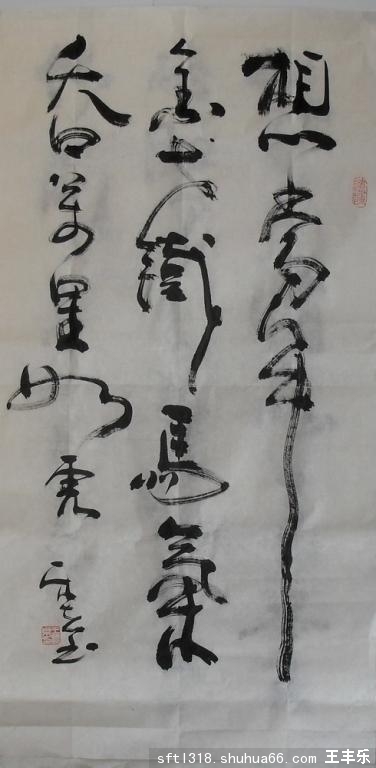 想當年
金戈鐵馬氣
吞萬里如虎
sftl318.shuhua66.com 王丰乐